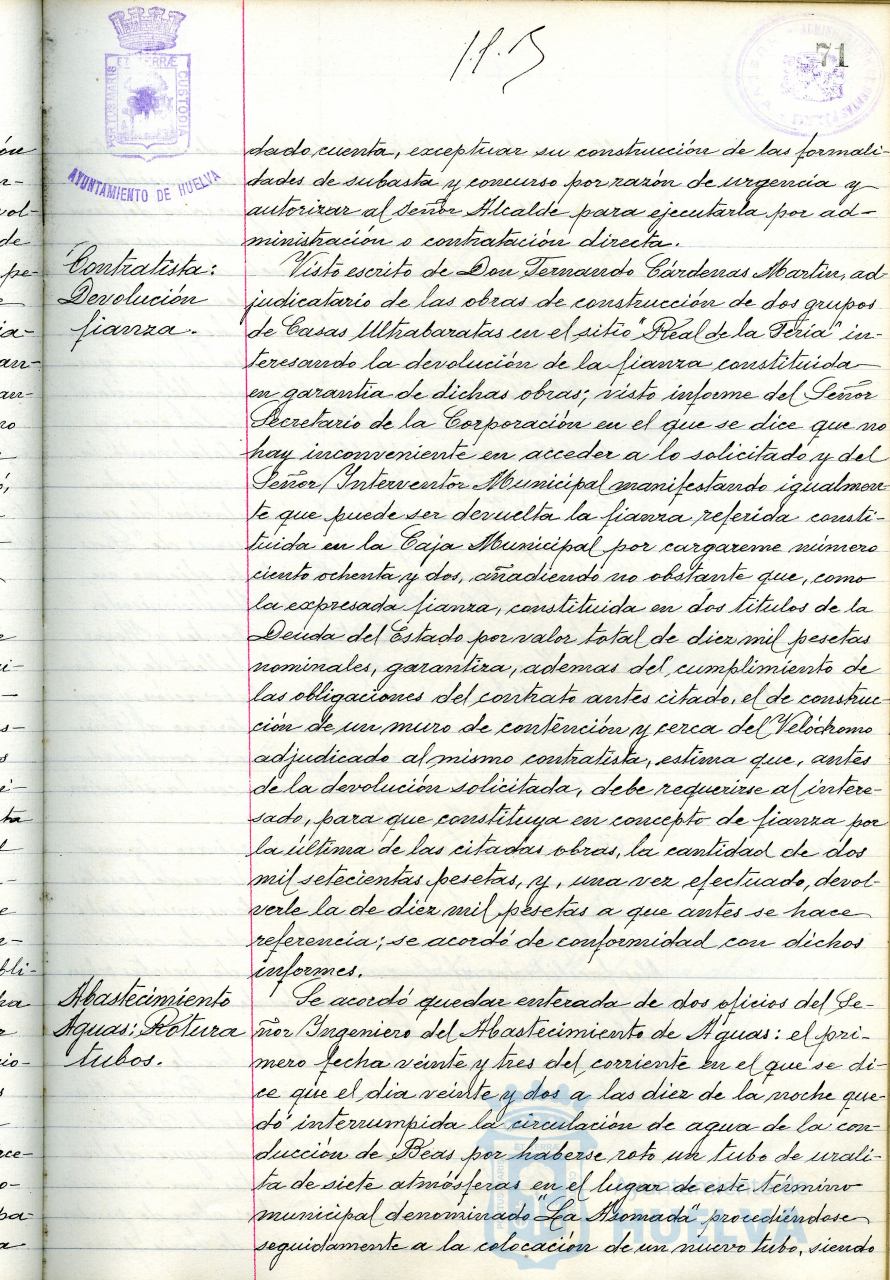 71
PORTUS MARIS ET TERRÆ CUSTODIA
AYUNTAMIENTO DE HUELVA
dado cuenta, exceptuar su construcción de las formali-
dades de subasta y concurso por razón de urgencia y
autorizar al señor Alcalde para ejecutarla por ad-
ministración o contratación directa.
Contratista:
Devolución
fianza.
Visto escrito de Don Fernando Cárdenas Martin, ad-
judicatario de las obras de construcción de dos grupos
de Casas Ultrabaratas en el sitio "Real de la Feria" in-
teresando la devolución de la fianza constituida
en garantia de dichas obras; visto informe del Señor
Secretario de la Corporación en el que se dice que no
hay inconveniente en acceder a lo solicitado y del
Señor Interventor Municipal manifestando igualmen-
te que puede ser devuelta la fianza referida consti-
tuida en la Caja Municipal por cargareme número
ciento ochenta y dos, añadiendo no obstante que, como
la expresada fianza, constituida en dos titulos de la
Deuda del Estado por valor total de diez mil pesetas
nominales, garantiza, ademas del cumplimiento de
las obligaciones del contrato antes citado, el de construc-
ción de un muro de contención y cerca del Velódromo
adjudicado al mismo contratista, estima que, antes
de la devolución solicitada, debe requerirse al intere-
sado, para que constituya en concepto de fianza por
la última de las citadas obras, la cantidad de dos
mil setecientas pesetas, y, una vez efectuado, devol-
verle la de diez mil pesetas a que antes se hace
referencia; se acordó de conformidad con dichos
informes.
Abastecimiento
Aguas: Rotura
tubos.
Se acordó quedar enterada de dos oficios del Se-
ñor Ingeniero del Abastecimiento de Aguas: el pri-
mero fecha veinte y tres del corriente en el que se di-
ce que el dia veinte y dos a las diez de la noche que-
dó interrumpida la circulación de agua de la con-
ducción de Beas por haberse roto un tubo de urali-
ta de siete atmósferas en el lugar de este término
municipal denominado "La Asomada" procediéndose
seguidamente a la colocación de un nuevo tubo, siendo
Ayuntamiento de
HUELVA